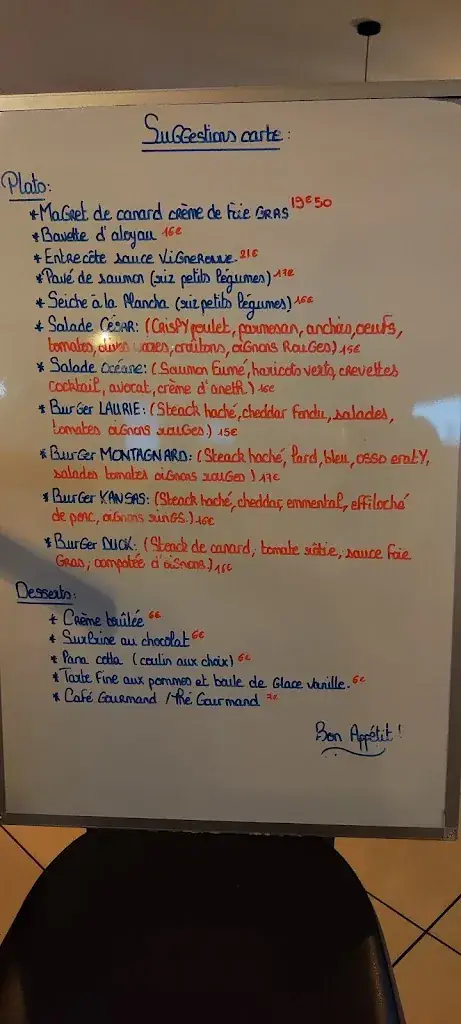 SuGGestions carte :
Plats:
* MaGret de canard crème de foie GRAS 19€50
* Bavette d'aloyau 16€
* Entrecôte sauce ViGneronne. 21€
* Pavé de saumon (riz petits légumes) 17€
* Seiche à la Plancha (riz petits légumes) 16€
* Salade CÉSAR: (CrisPY poulet, parmesan, anchois, oeufs,
tomates, olives noires, croûtons, oiGnons RouGes) 15€
* Salade Océane: (Saumon Fumé, haricots verts, crevettes
cocktail, avocat, crème d'aneth.) 16€
* BurGer LAURIE: (Steack haché, cheddar fondu, salades,
tomates oiGnons rouGes.) 15€
* BurGer MONTAGNARD: (Steack haché, lard, bleu, osso eratY,
salades tomates oiGnons rouGes) 17€
* BurGer KANSAS: (Steack haché, cheddar, emmental, effiloché
de porc, oiGnons rinGS.) 16€
* BurGer DUCK: (Steack de canard, tomate rôtie, sauce foie
Gras, compotée d'oiGnons.)
Desserts:
* Crème brûlée 6€
* Surprise au chocolat 6€
* Pana cotta (coulin aux choix) 6€
* Tarte Fine aux pommes et boule de Glace vanille. 6€
* Café Gourmand / Thé Gourmand
Bon Appétit !